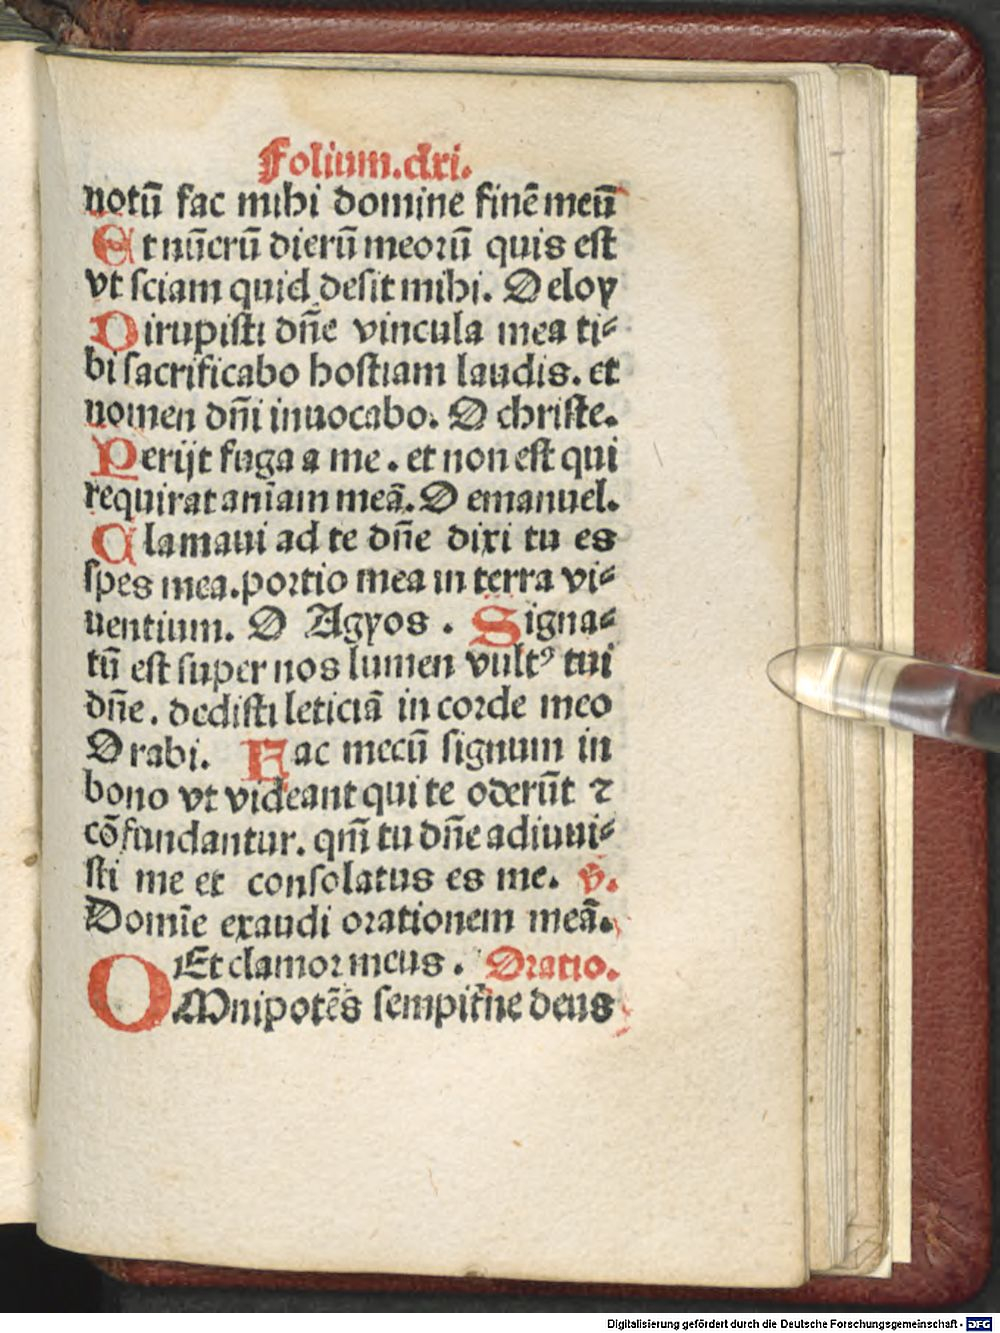 Folium.clxi.
notū fac mihi domine finē meū
Et nūerū dierū meoꝛū quis est
vt sciam quid desit mihi. O eloy
Dirupisti dn̄e vincula mea ti⸗
bi sacrificabo hostiam laudis. et
nomen dn̄i inuocabo. O christe.
Perijt fuga a me. et non est qui
requirat aniam meā. O emanuel.
Clamaui ad te dn̄e dixi tu es
spes mea. poꝛtio mea in terra vi⸗
uentium. O Agyos. Signa⸗
tū est super nos lumen vultꝰ tui
dn̄e. dedisti leticiā in coꝛde meo
O rabi. Fac mecū signum in
bono vt videant qui te oderūt ⁊
cōfundantur. qm̄ tu dn̄e adiuui⸗
sti me et consolatus es me. v̄.
Domīe exaudi oꝛationem meā.
Et clamoꝛ meus. Oꝛatio.
OMnipotēs sempit̄ne deus
Digitalisierung gefördert durch die Deutsche Forschungsgemeinschaft - DFG